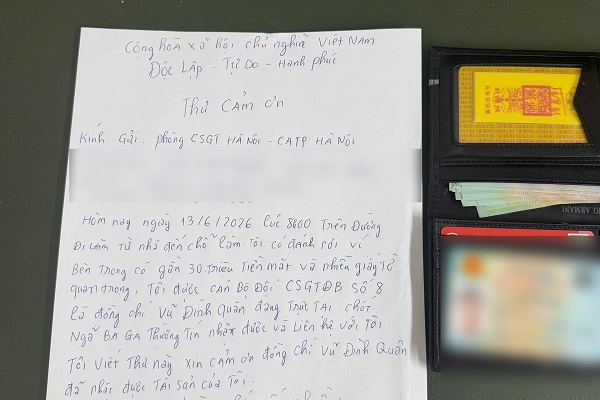 Cộng hoà xã hội chủ nghĩa Việt NAM
Độc Lập - Tự Do - Hạnh phúc
Thư CẢM ơn
Kính Gửi: phòng CSGT HÀ NỘI - CATP HÀ NỘI
Hôm nay ngày 13/6/2026 lúc 8h00 Trên Đường
Đi LÀM TỪ nhà đến chỗ làm Tôi có đánh rơi ví
Bên Trong có gần 30 Triệu Tiền mặt và nhiều giấy Tờ
quan trọng, Tôi được cán Bộ Đội CSGTĐB Số 8
là đồng chí Vũ Đình Quân đang Trực TẠI chốt
Ngã BA GA Thường Tín nhặt được và Liên hệ với Tôi
Tôi Viết Thư này XIN CẢM ơn đồng chí Vũ Đình Quân
đã nhặt được TÀI SẢN của Tôi.
ARMANI